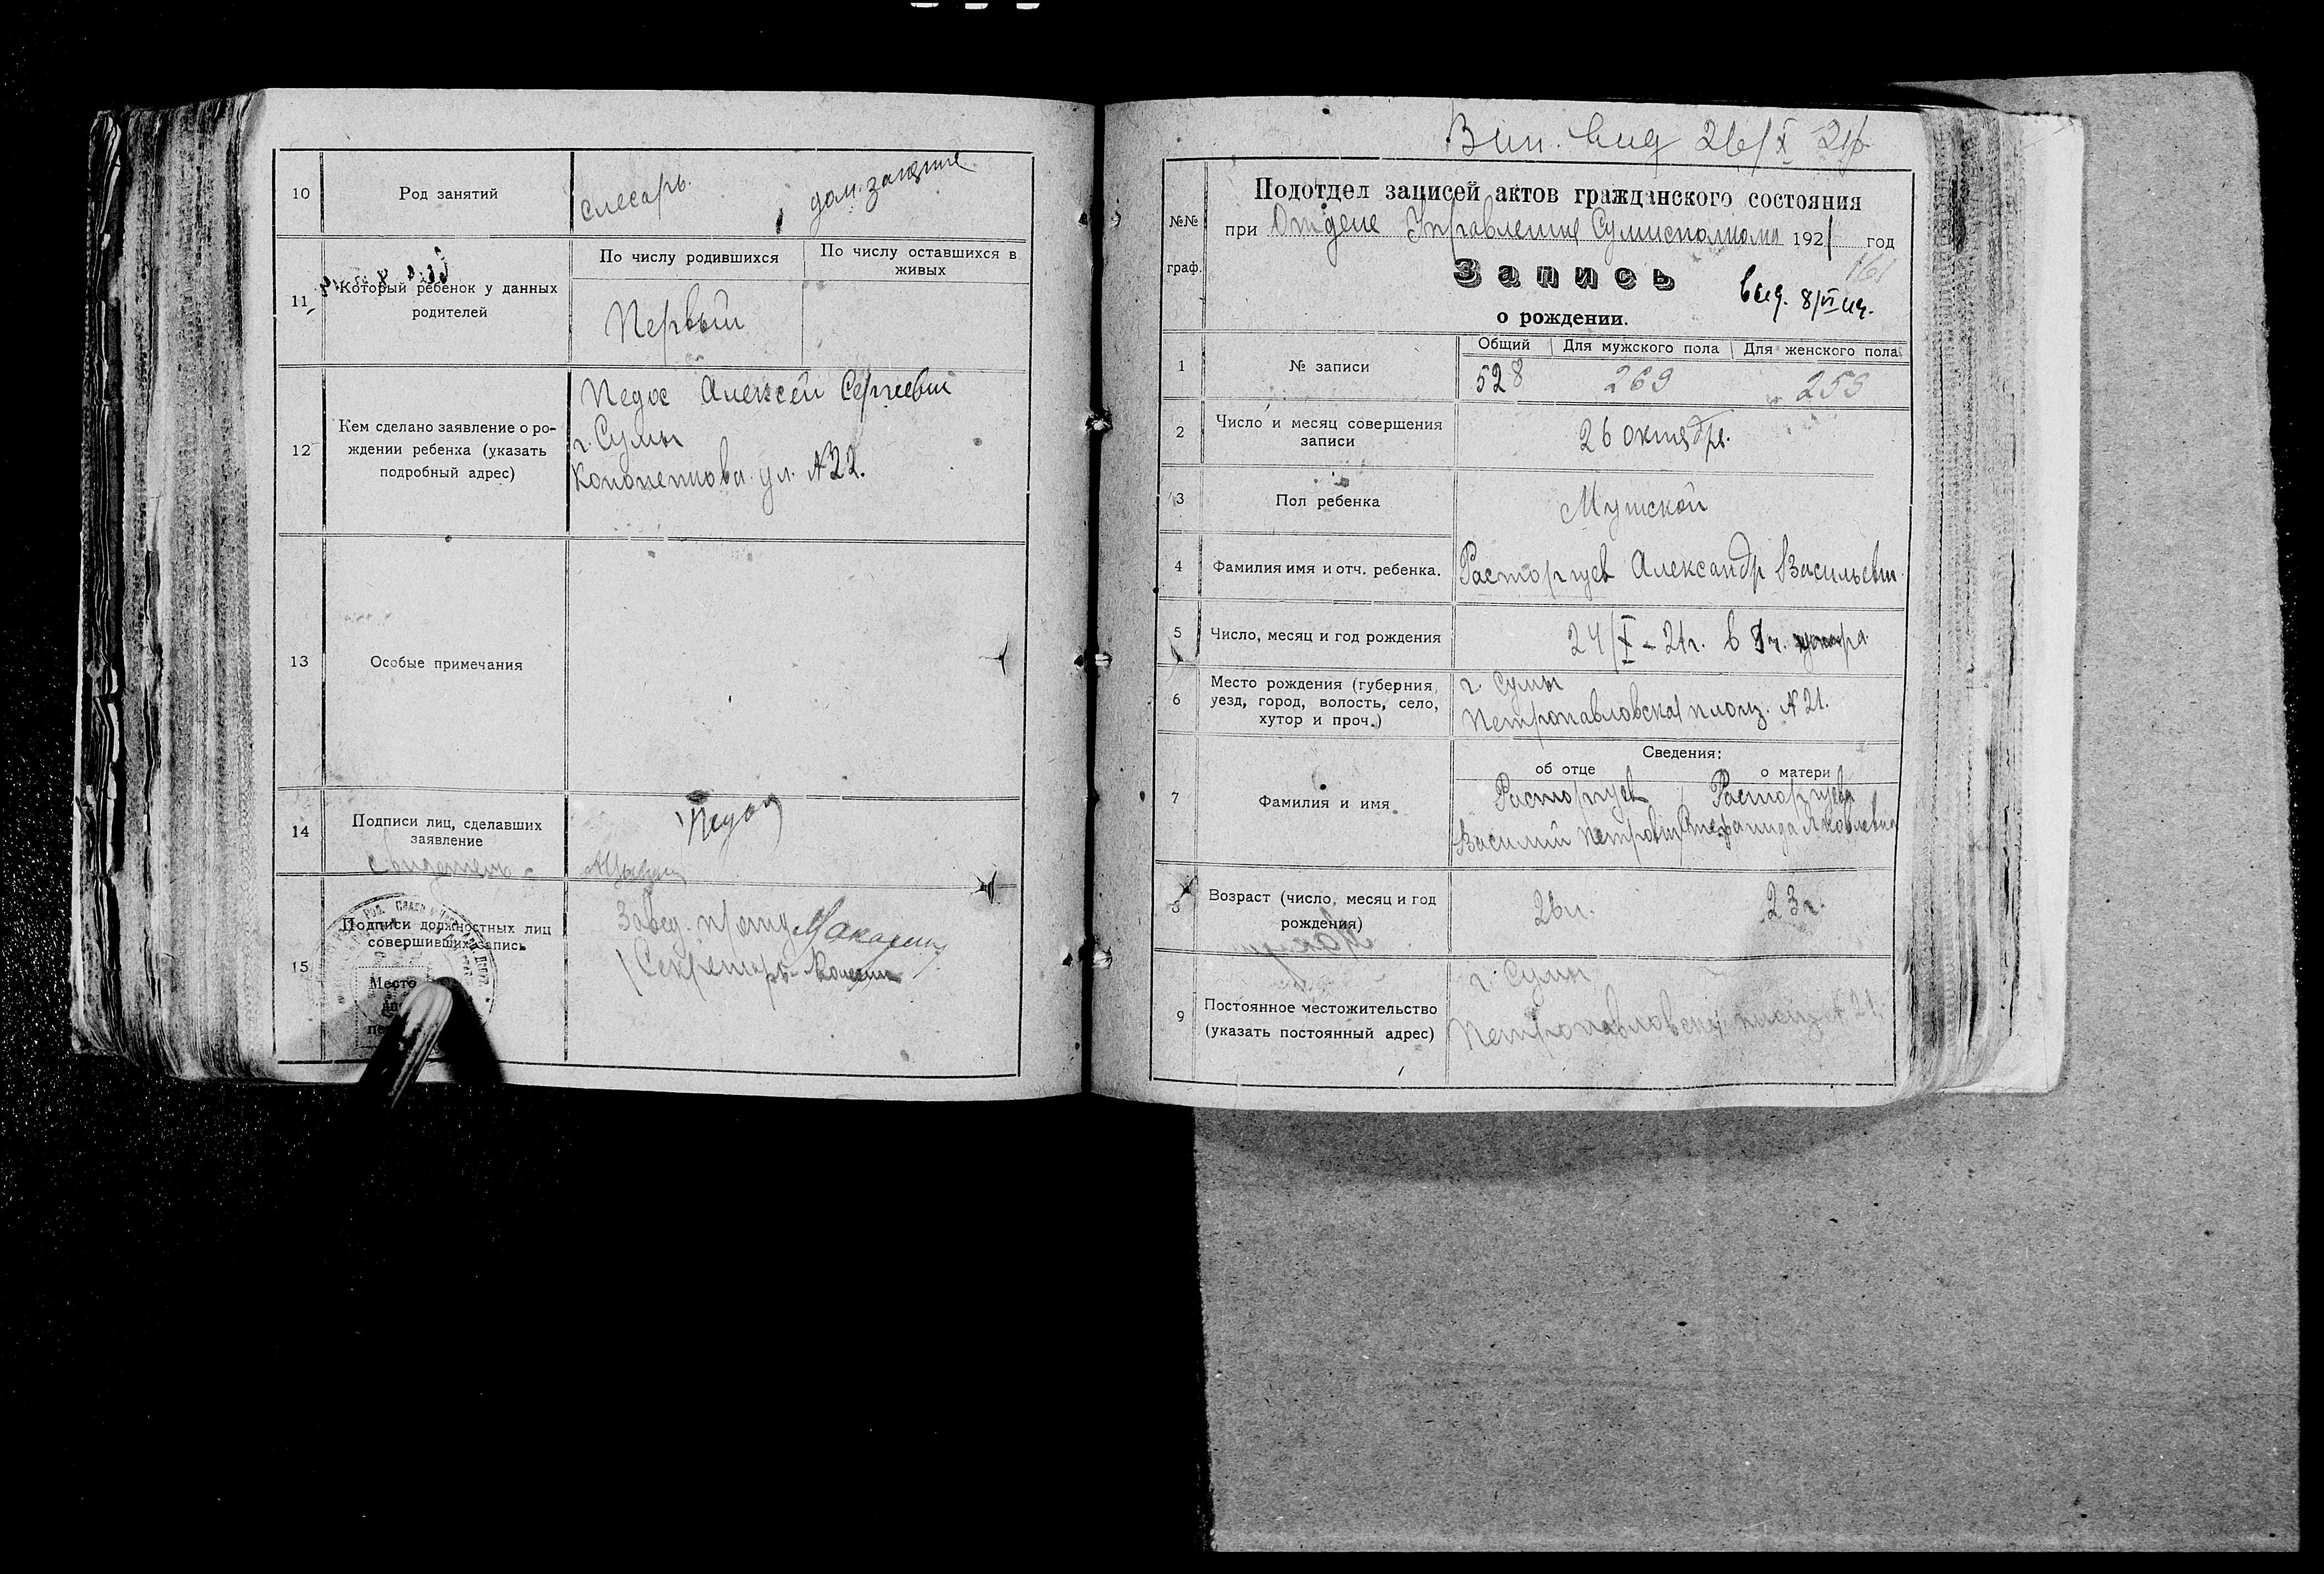 10 Род занятий слесарь. дом. занятие
11 Который ребенок у данных родителей
По числу родившихся По числу оставшихся в живых
Первый
12 Кем сделано заявление о ро-
ждении ребенка (указать
подробный адрес)
Педос Алексей Сергеевич
г. Сумы
ул. №22.
13 Особые примечания
14 Подписи лиц, сделавших
заявление
свидетель
15 Подписи должностных лиц
совершивших запись
Завед. Макаренко
Секретарь
Место
Вып. выд 26/X 21р.
№№
граф.
Подотдел записей актов гражданского состояния
при Отделе Управления Сумисполкома 1921 год
161
Запись
о рождении.
выд. 8/VI
1 № записи
Общий Для мужского пола Для женского пола
528 269 259
2 Число и месяц совершения
записи
26 октября.
3 Пол ребенка Мужской
4 Фамилия имя и отч. ребенка. Расторгуев Александр Васильевич
5 Число, месяц и год рождения 24/X - 21г. в ч.
6 Место рождения (губерния,
уезд, город, волость, село,
хутор и проч.)
г. Сумы
Петропавловская площ. №21.
Сведения:
об отце о матери
7 Фамилия и имя
Расторгуев Расторгуева
Василий Петрович Степанида Яковлевна
8 Возраст (число, месяц и год
рождения)
26л. 23г.
9 Постоянное местожительство
(указать постоянный адрес)
г. Сумы
Петропавловская площ №21.